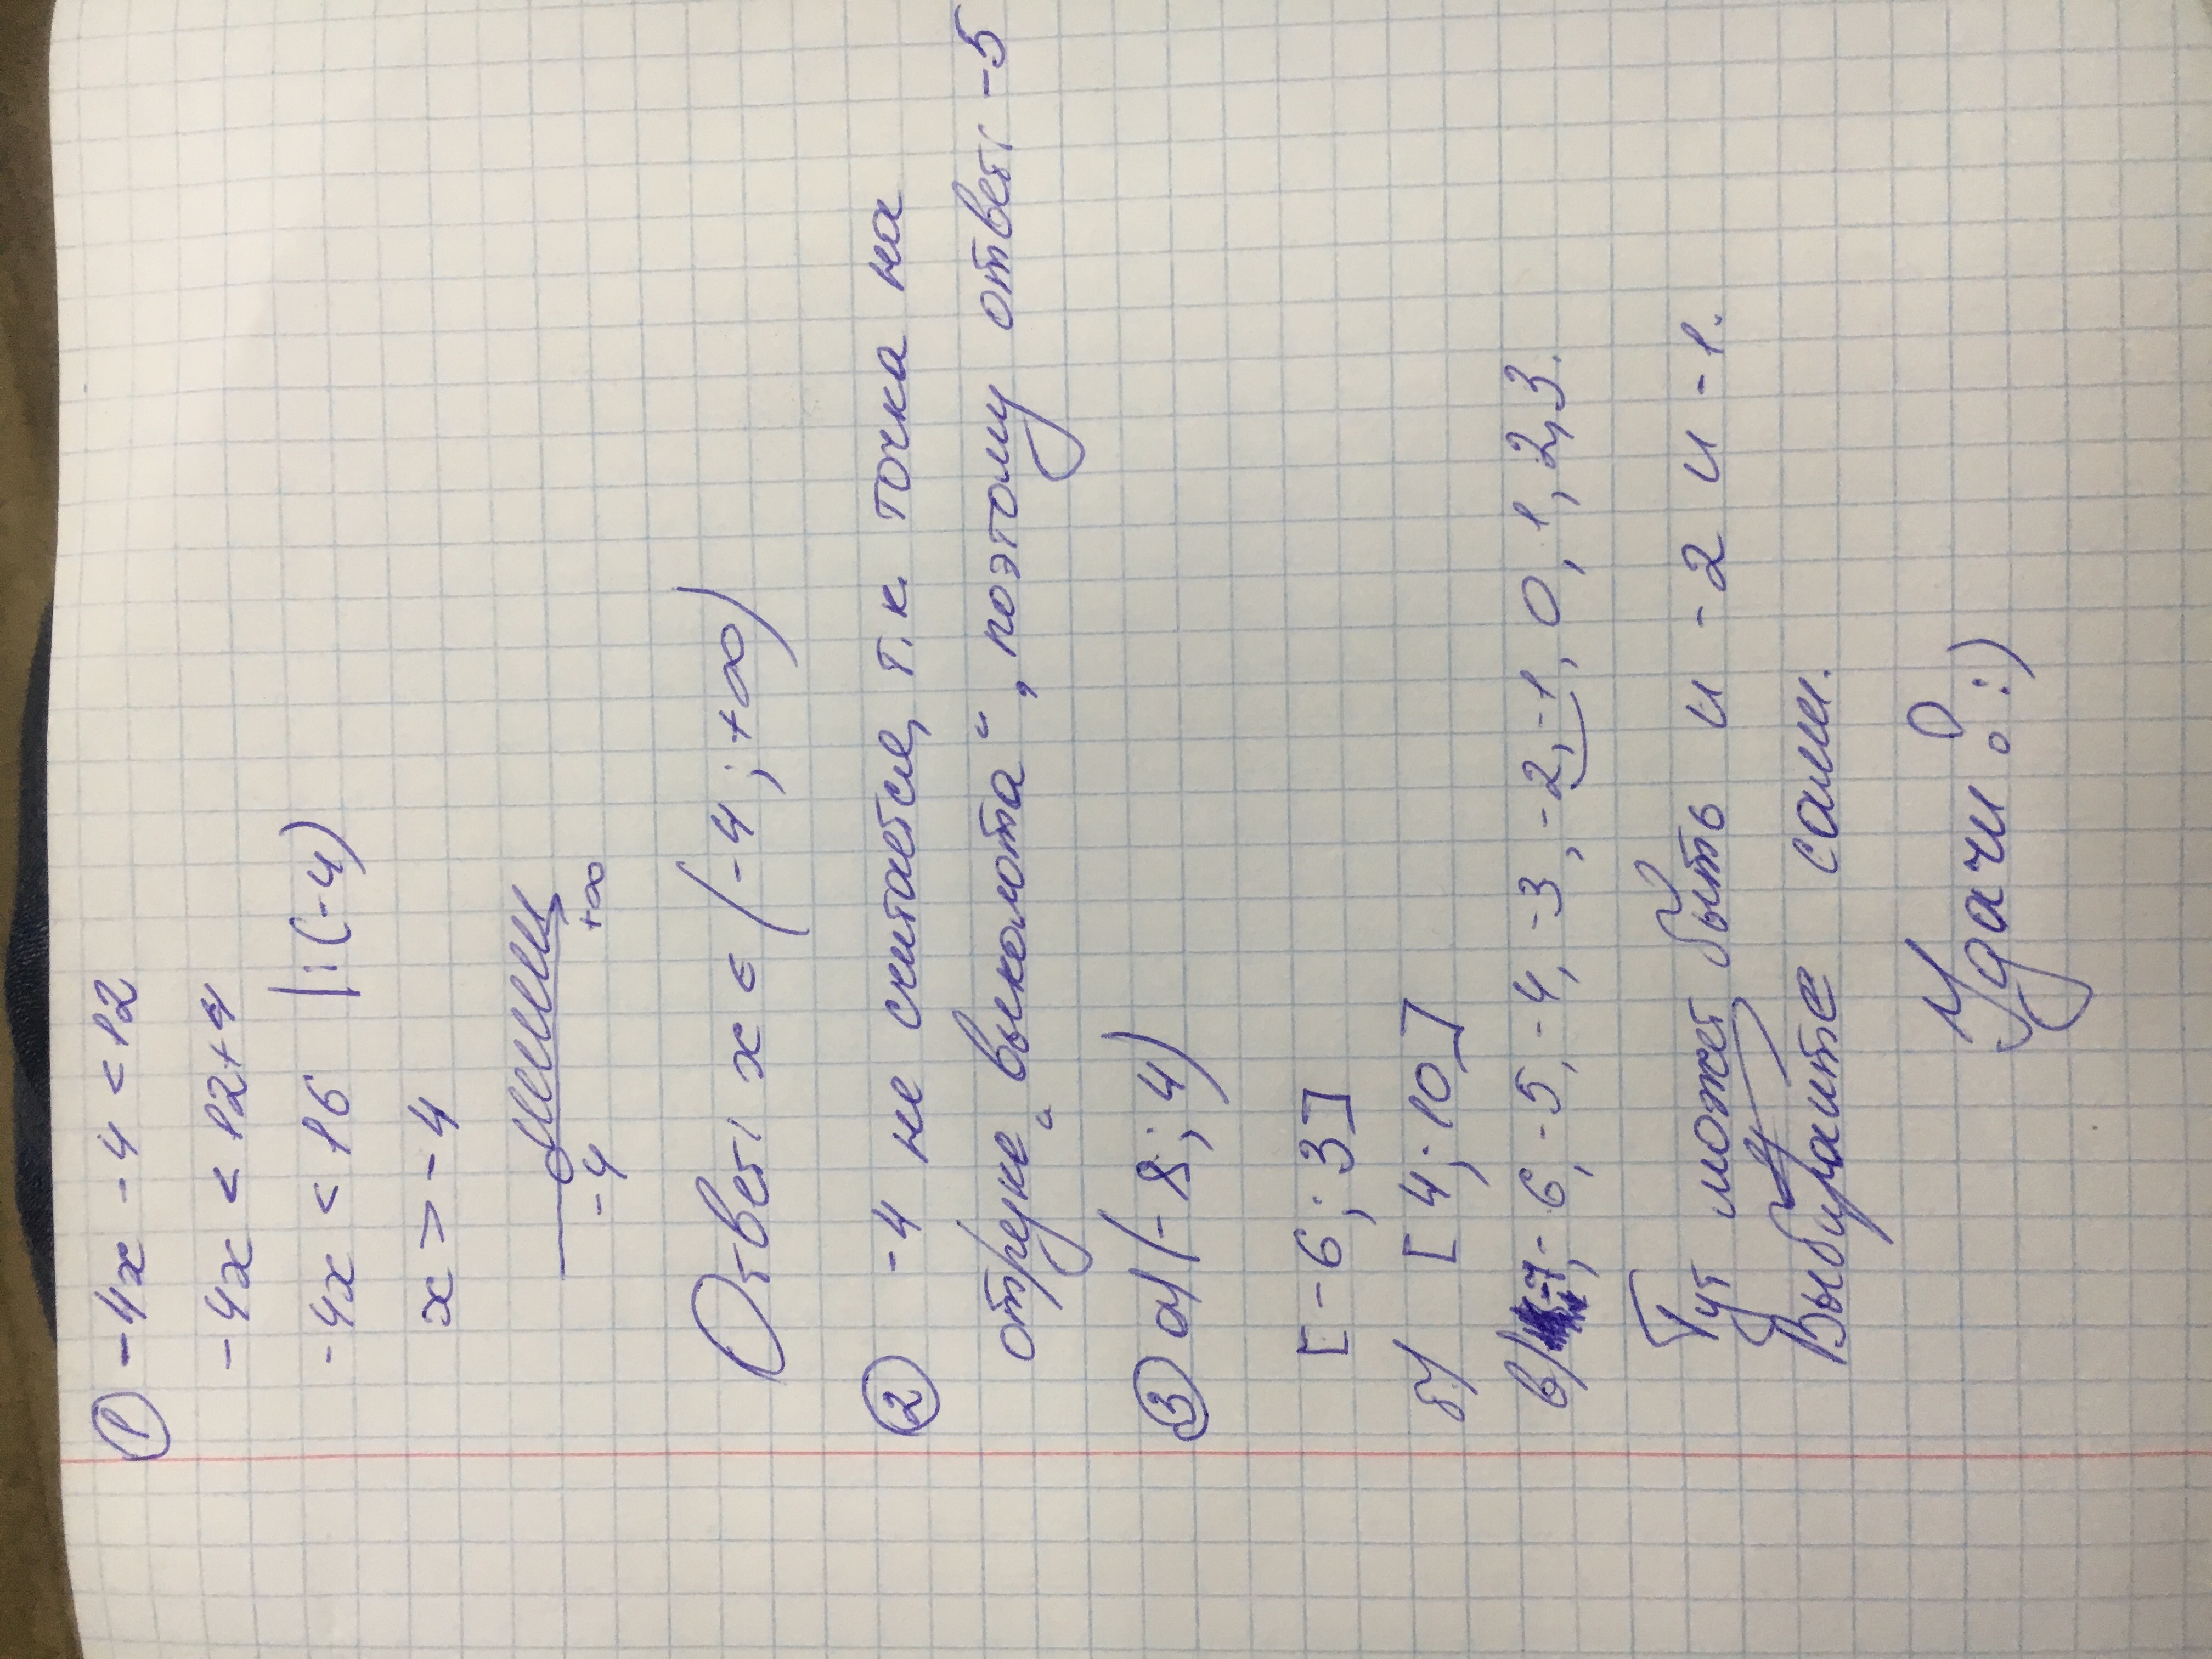 ① -4x -4 < 12
-4x < 12+4
-4x < 16 | :(-4)
x > -4
-4 +∞
Ответ: x ∈ (-4; +∞)
② -4 не считается, т.к. точка на
отрезке "выколота", поэтому ответ: -5
③ а) (-8; 4)
[-6; 3]
б) [4; 10]
в) -7, -6, -5, -4, -3, -2, -1, 0, 1, 2, 3.
Тут может быть и -2 и -1.
Выбирайте сами.
Удачи! :)